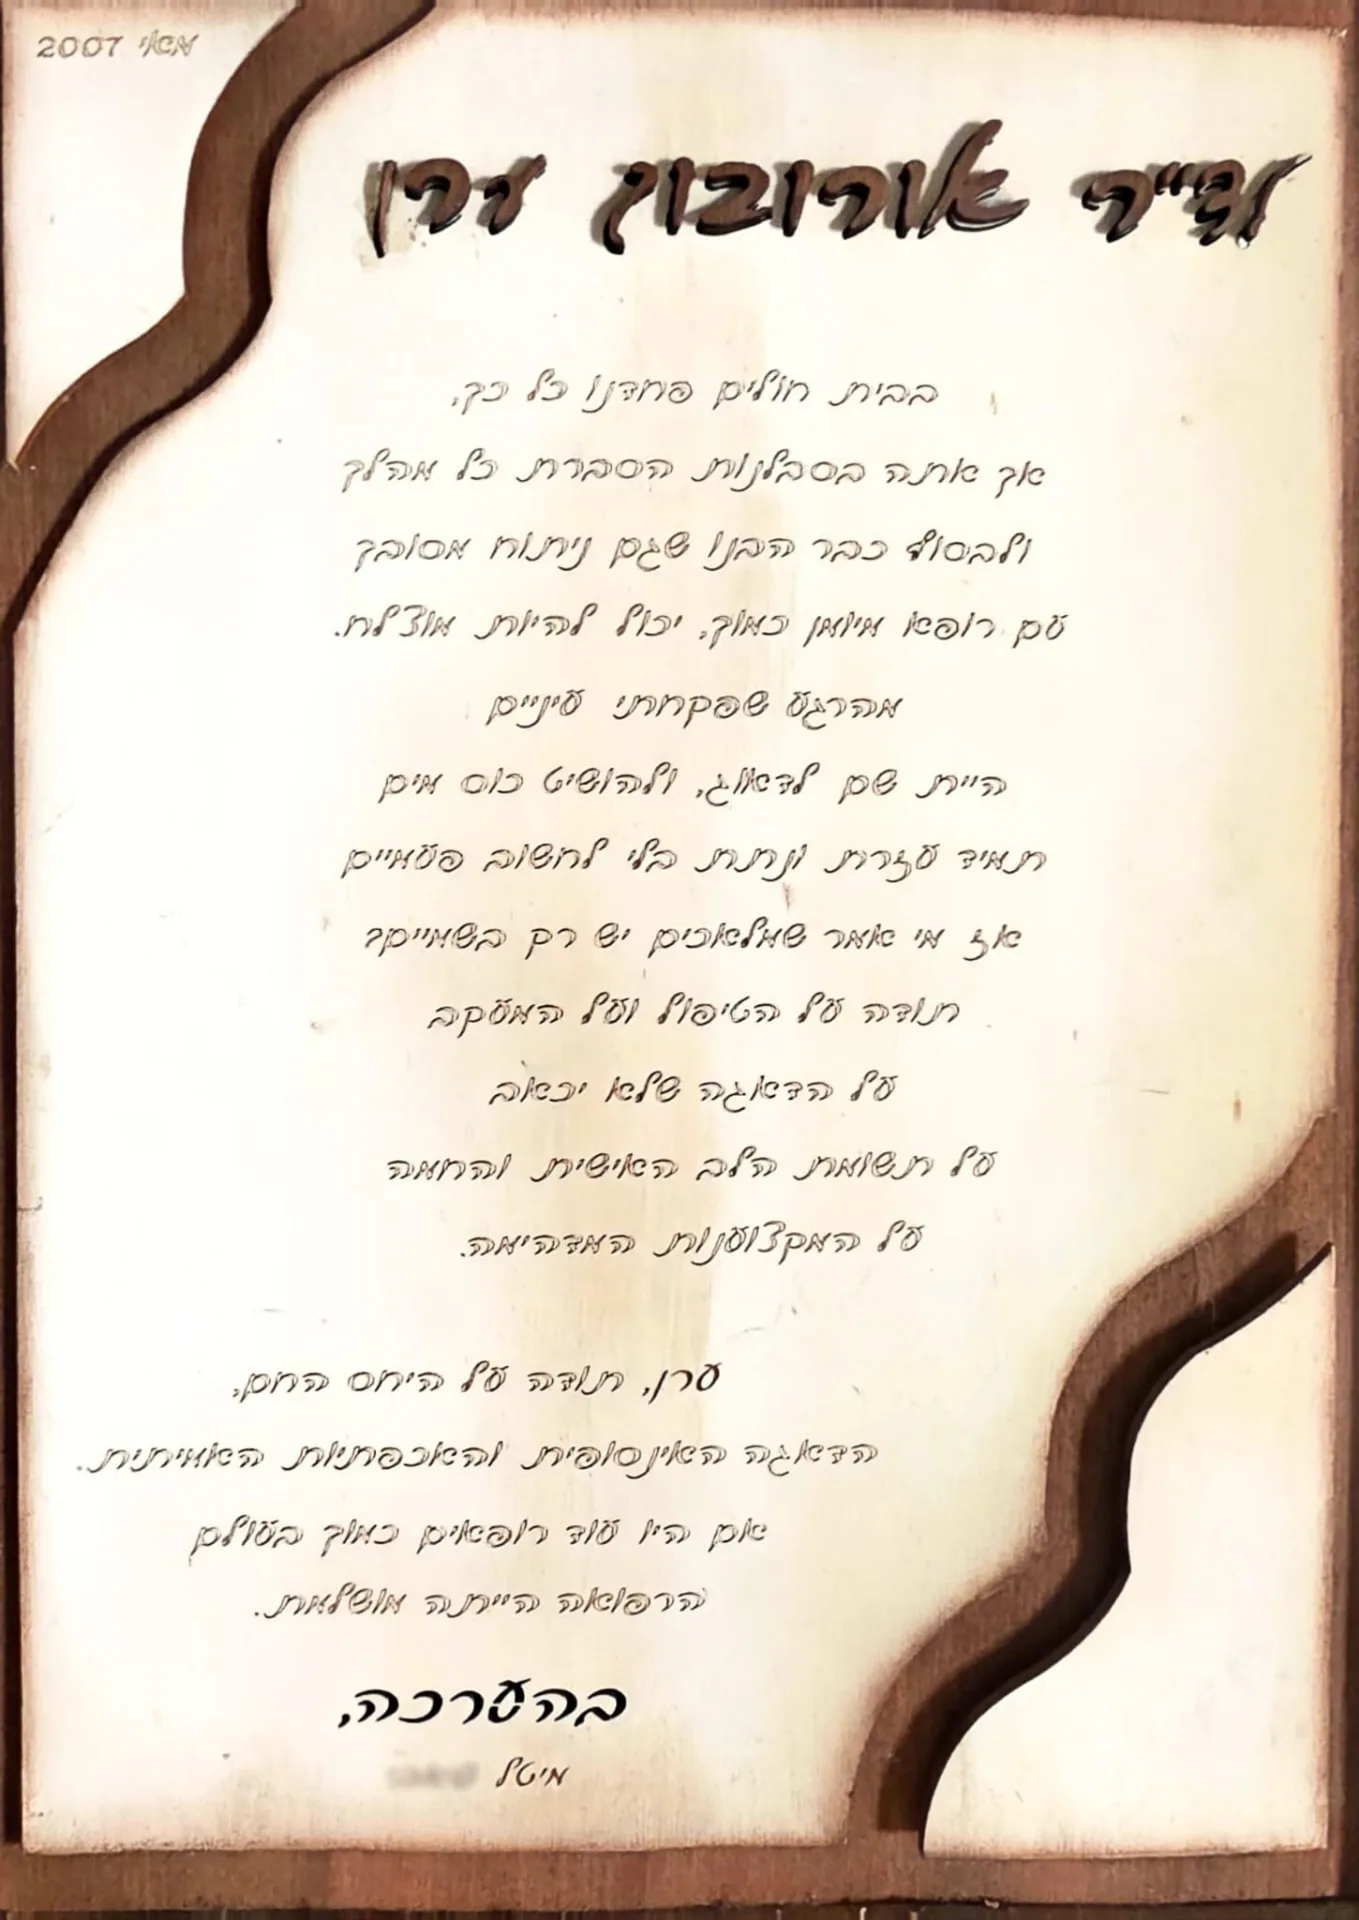 מאי 2007
ד"ר אורובוך ערן
בבית חולים פחדנו כל כך,
אך אתה בסבלנות הסברת כל מהלך
ולבסוף כבר הבנו שגם ניתוח מסובך
עם רופא מיומן כמוך, יכול להיות מוצלח.
מהרגע שפקחתי עיניים
היית שם לדאוג, ולהושיט כוס מים
תמיד עזרת ונתת בלי לחשוב פעמיים
אז מי אמר שמלאכים יש רק בשמיים?
תודה על הטיפול ועל המעקב
על הדאגה שלא יכאב
על תשומת הלב האישית והחמה
על המקצוענות המדהימה.
ערן, תודה על היחס החם,
הדאגה האינסופית והאכפתיות האמיתית.
אם היו עוד רופאים כמוך בעולם
הרפואה הייתה מושלמת.
בהערכה,
מיטל